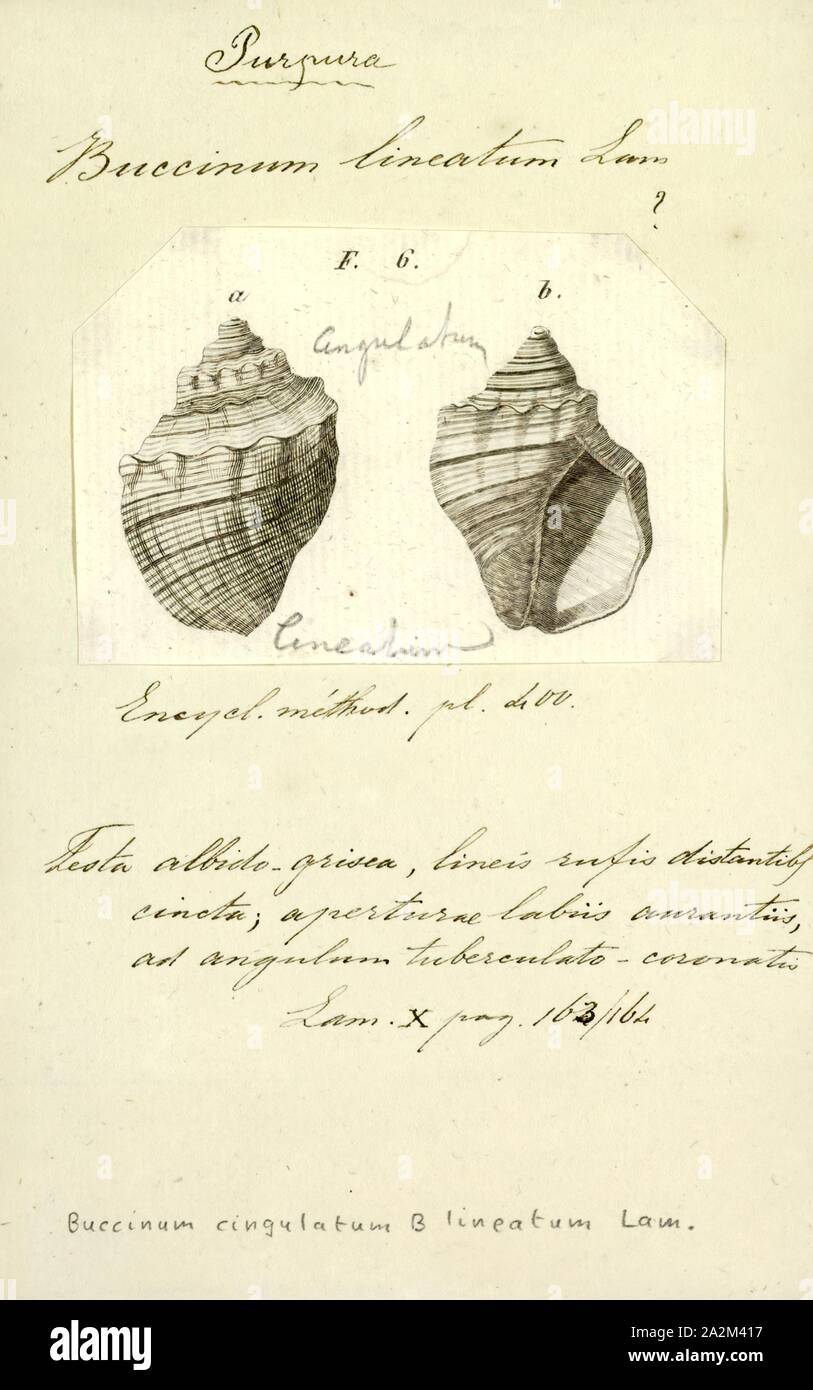 Purpura
Buccinum lineatum Lam
?
F. 6.
a b.
lineatum
Encycl. méthod. pl. 400.
Testa albido-grisea, lineis rufis distantib
cincta; aperturae labiis aurantiis,
ad angulum tuberculato-coronatis
Lam. X pag. 163/164
Buccinum cingulatum B lineatum Lam.
alamy
Image ID: 2A2M417
www.alamy.com